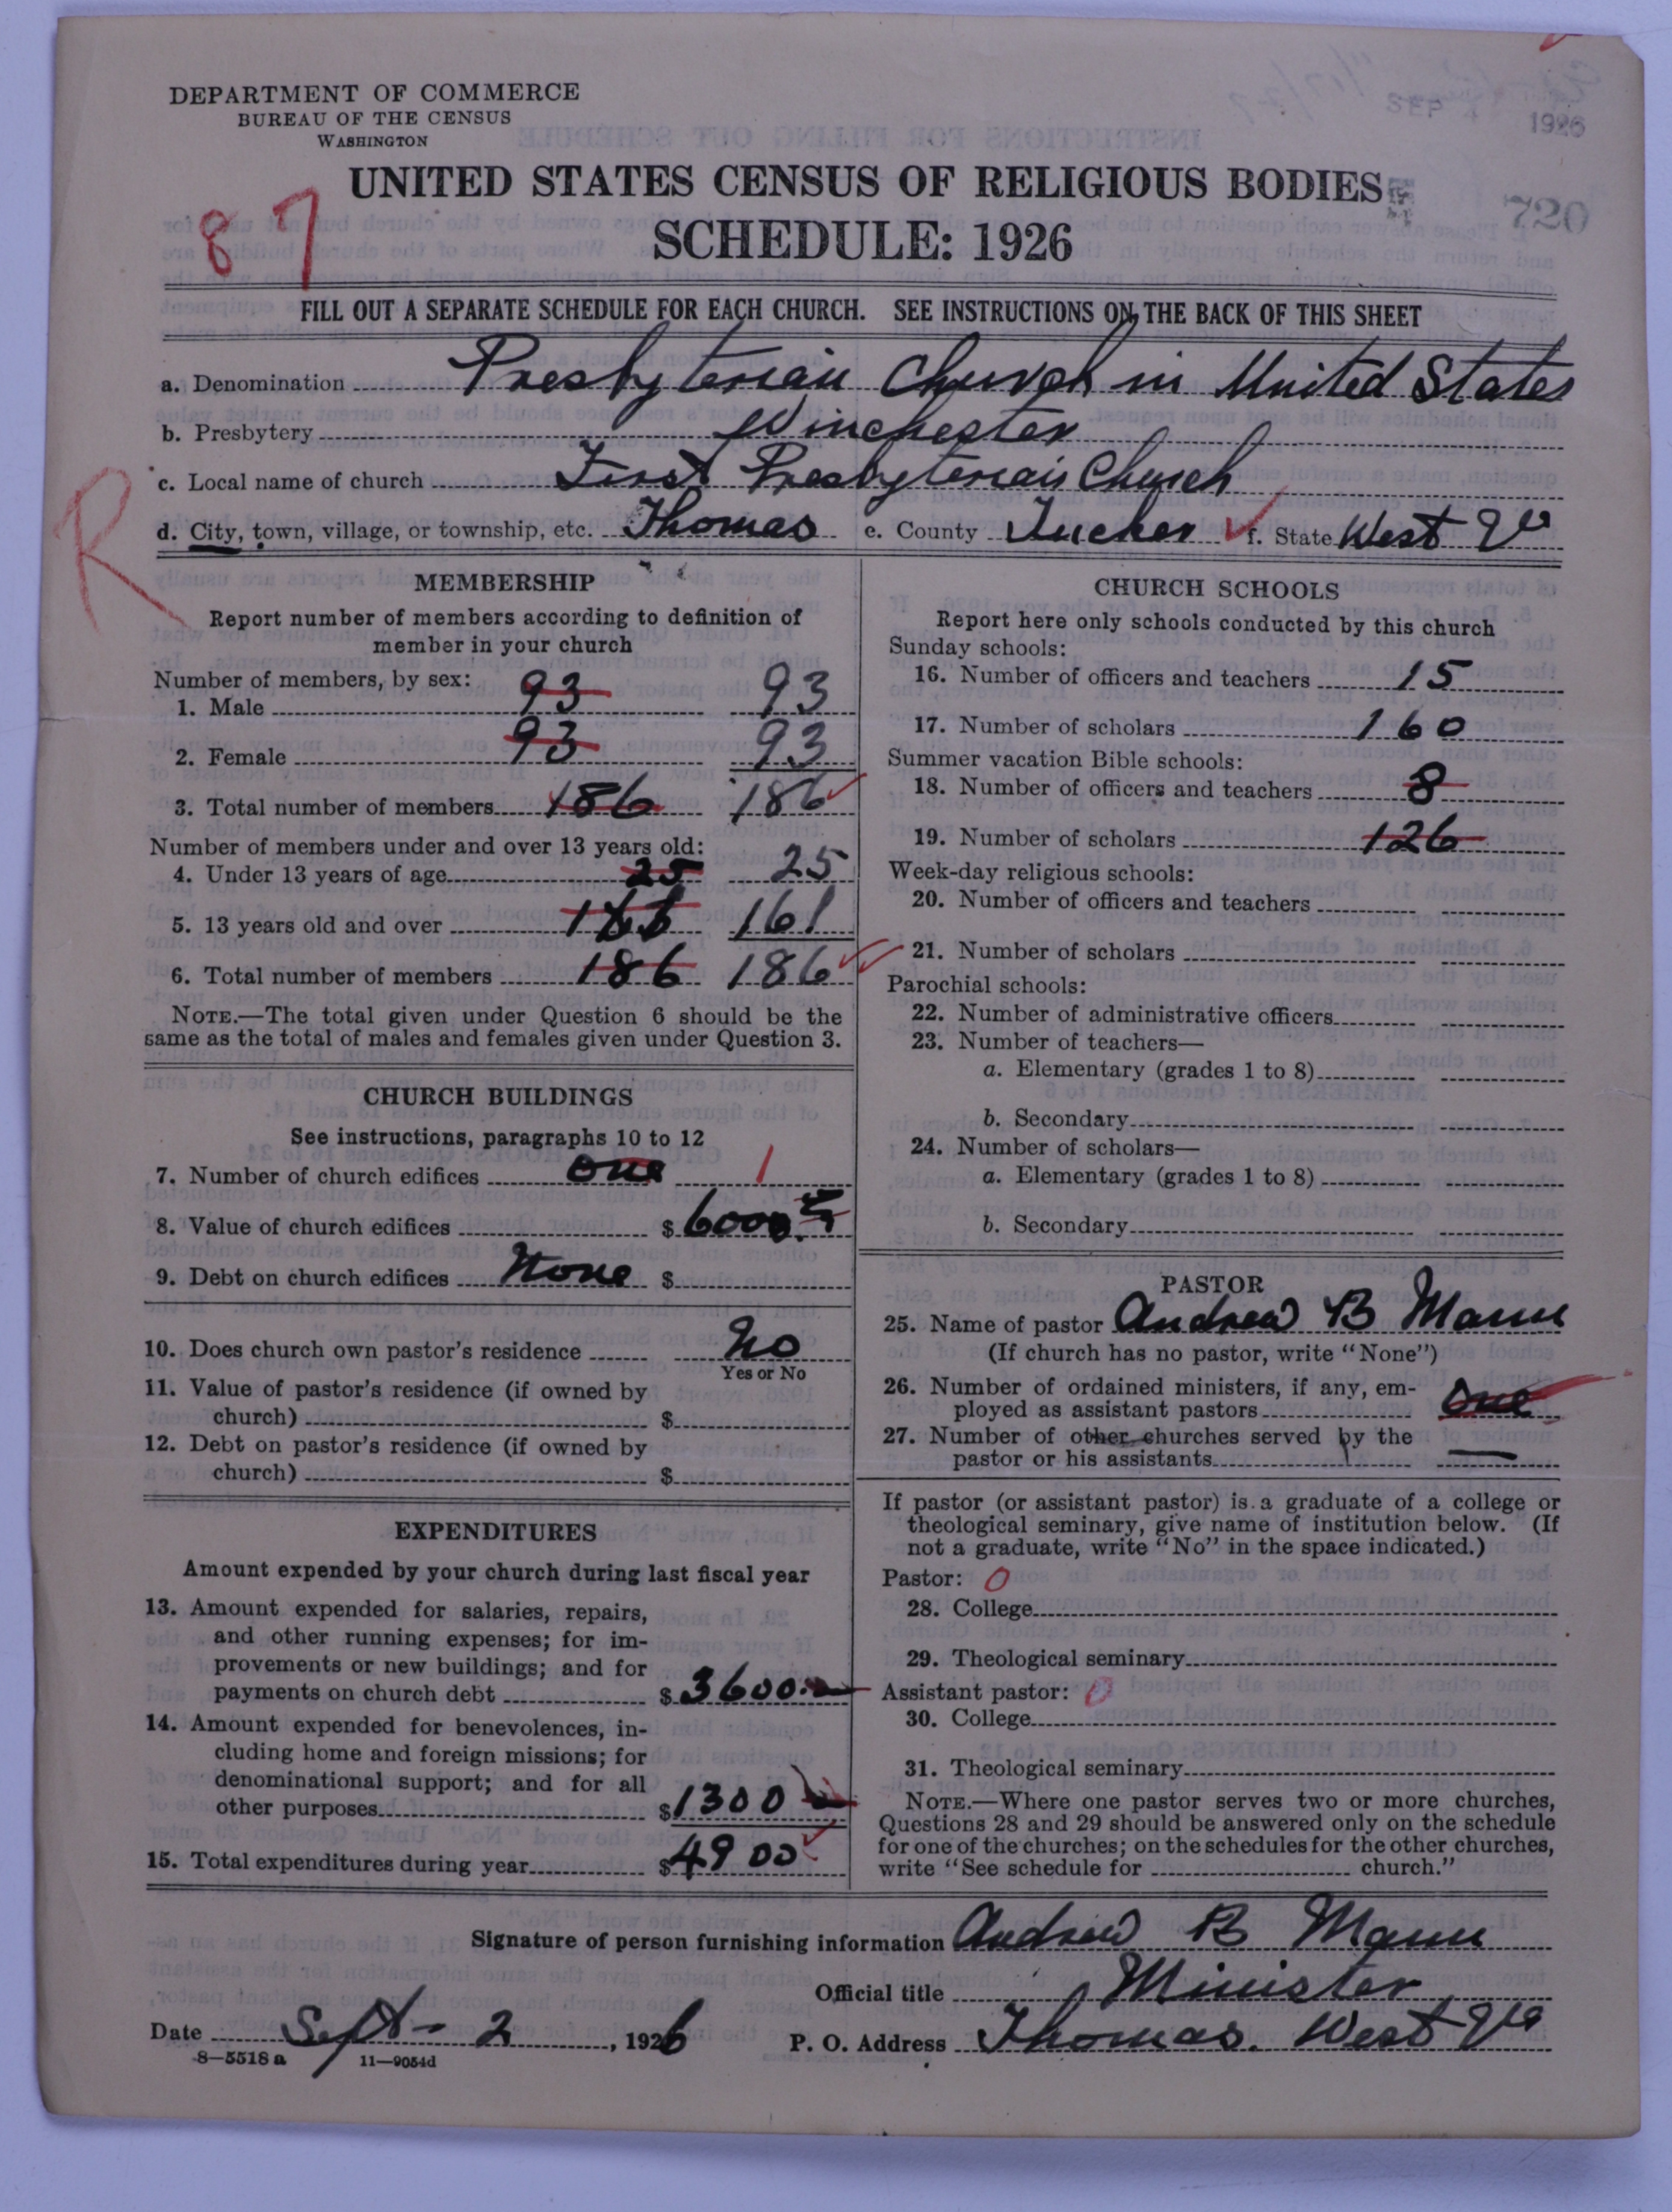 DEPARTMENT OF COMMERCE
BUREAU OF THE CENSUS
WASHINGTON
SEP 1926
UNITED STATES CENSUS OF RELIGIOUS BODIES
720
87
SCHEDULE: 1926
FILL OUT A SEPARATE SCHEDULE FOR EACH CHURCH. SEE INSTRUCTIONS ON THE BACK OF THIS SHEET
a. Denomination Presbyterian Church in United States
b. Presbytery Winchester
c. Local name of church First Presbyterian Church
R
d. City, town, village, or township, etc. Thomas e. County Tucker f. State West Va
MEMBERSHIP
Report number of members according to definition of
member in your church
Number of members, by sex:
1. Male 93 93
2. Female 93 93
3. Total number of members 186 186
Number of members under and over 13 years old:
4. Under 13 years of age 25 25
5. 13 years old and over 161
6. Total number of members 186 186
NOTE.—The total given under Question 6 should be the
same as the total of males and females given under Question 3.
CHURCH BUILDINGS
See instructions, paragraphs 10 to 12
7. Number of church edifices one 1
8. Value of church edifices $ 6000.
9. Debt on church edifices None $
10. Does church own pastor's residence No
Yes or No
11. Value of pastor's residence (if owned by
church) $
12. Debt on pastor's residence (if owned by
church) $
EXPENDITURES
Amount expended by your church during last fiscal year
13. Amount expended for salaries, repairs,
and other running expenses; for im-
provements or new buildings; and for
payments on church debt $ 3600.
14. Amount expended for benevolences, in-
cluding home and foreign missions; for
denominational support; and for all
other purposes $ 1300
15. Total expenditures during year $ 4900
CHURCH SCHOOLS
Report here only schools conducted by this church
Sunday schools:
16. Number of officers and teachers 15
17. Number of scholars 160
Summer vacation Bible schools:
18. Number of officers and teachers 8
19. Number of scholars 126
Week-day religious schools:
20. Number of officers and teachers
21. Number of scholars
Parochial schools:
22. Number of administrative officers
23. Number of teachers—
a. Elementary (grades 1 to 8)
b. Secondary
24. Number of scholars—
a. Elementary (grades 1 to 8)
b. Secondary
PASTOR
25. Name of pastor Andrew B Mann
(If church has no pastor, write "None")
26. Number of ordained ministers, if any, em-
ployed as assistant pastors one
27. Number of other churches served by the
pastor or his assistants —
If pastor (or assistant pastor) is a graduate of a college or
theological seminary, give name of institution below. (If
not a graduate, write "No" in the space indicated.)
Pastor: 0
28. College
29. Theological seminary
Assistant pastor: 0
30. College
31. Theological seminary
NOTE.—Where one pastor serves two or more churches,
Questions 28 and 29 should be answered only on the schedule
for one of the churches; on the schedules for the other churches,
write "See schedule for church."
Signature of person furnishing information Andrew B Mann
Official title Minister
Date Sept - 2, 1926 P. O. Address Thomas. West Va
8—5518 a 11—9054d